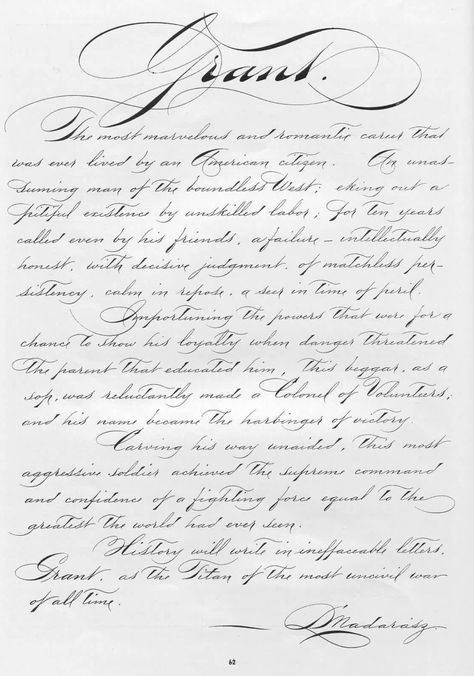 Grant.
The most marvelous and romantic career that
was ever lived by an American citizen. An unas-
suming man of the boundless West; eking out a
pitiful existence by unskilled labor; for ten years
called even by his friends, a failure - intellectually
honest, with decisive judgment, of matchless per-
sistency, calm in repose, a seer in time of peril.
Importuning the powers that were for a
chance to show his loyalty when danger threatened
the parent that educated him, this beggar, as a
sop, was reluctantly made a Colonel of Volunteers;
and his name became the harbinger of victory.
Carving his way unaided, this most
aggressive soldier achieved the supreme command
and confidence of a fighting force equal to the
greatest the world had ever seen.
History will write in ineffaceable letters,
Grant, as the Titan of the most uncivil war
of all time.
L Madarász.
62